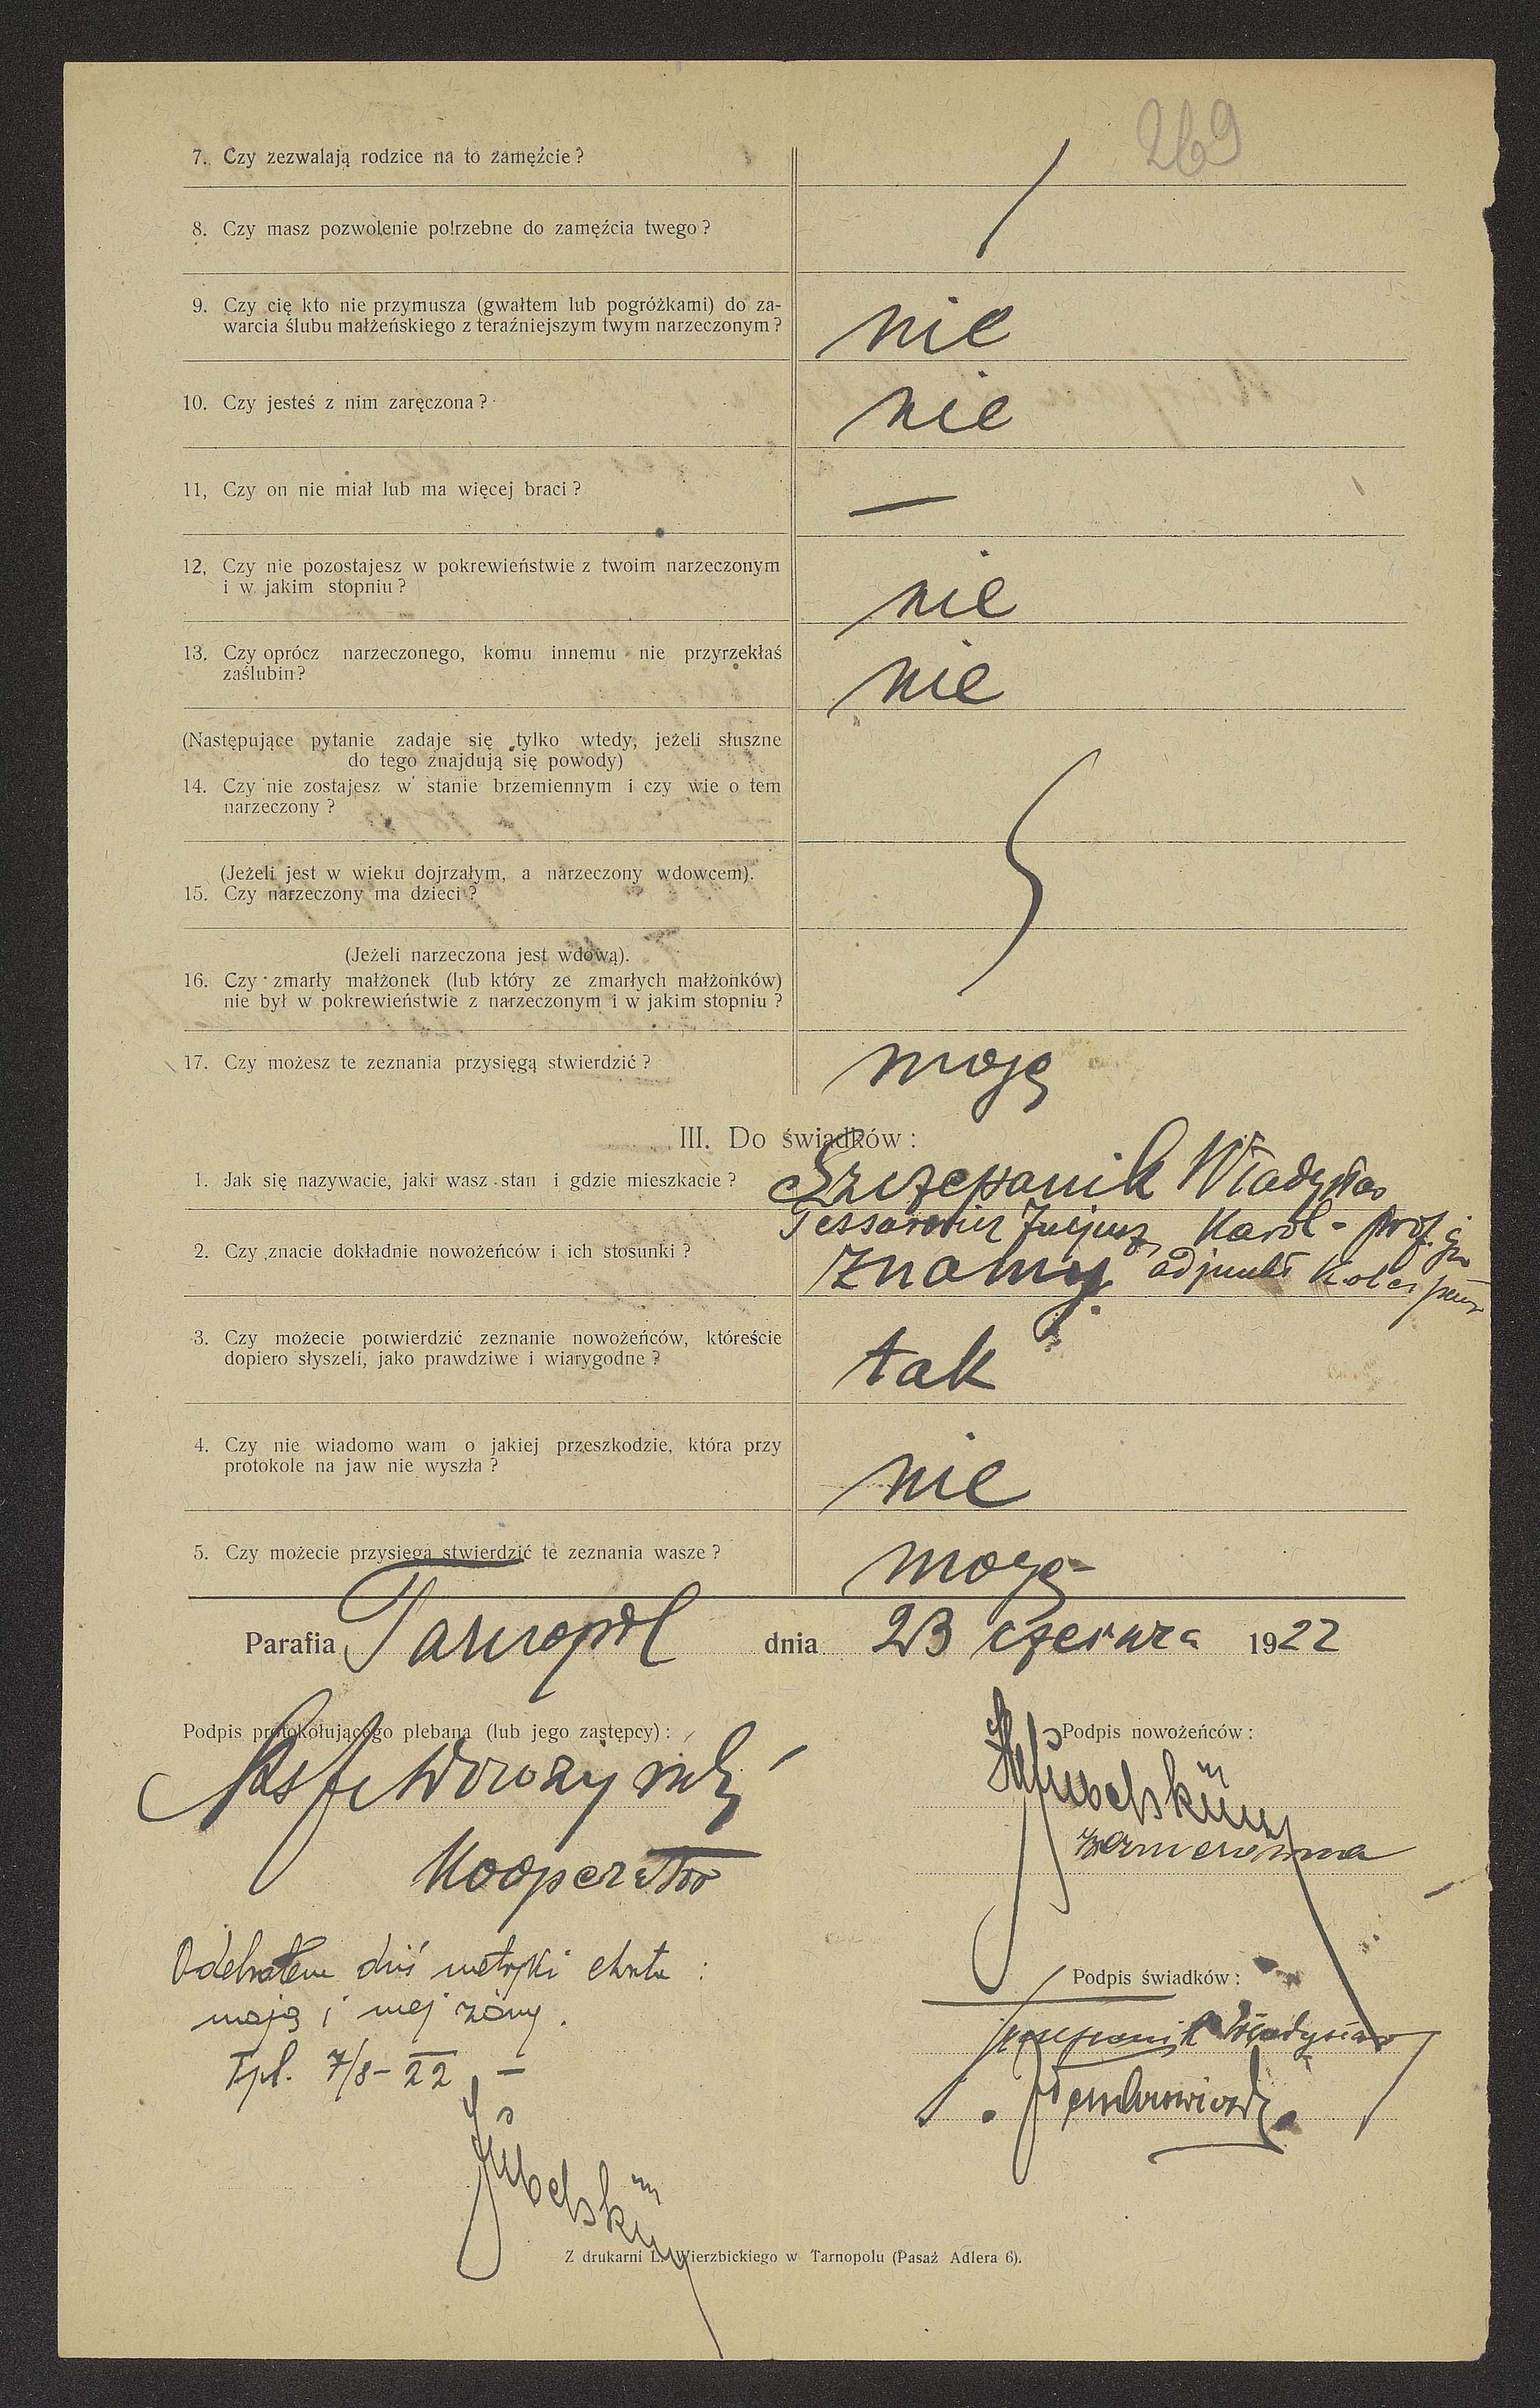 269
7. Czy zezwalają rodzice na to zamęźcie?
8. Czy masz pozwolenie potrzebne do zamęźcia twego?
9. Czy cię kto nie przymusza (gwałtem lub pogróżkami) do za-
warcia ślubu małżeńskiego z teraźniejszym twym narzeczonym?
nie
10. Czy jesteś z nim zaręczona?
nie
11, Czy on nie miał lub ma więcej braci?
—
12, Czy nie pozostajesz w pokrewieństwie z twoim narzeczonym
i w jakim stopniu?
nie
13. Czy oprócz narzeczonego, komu innemu nie przyrzekłaś
zaślubin?
nie
(Następujące pytanie zadaje się tylko wtedy, jeżeli słuszne
do tego znajdują się powody)
14. Czy nie zostajesz w stanie brzemiennym i czy wie o tem
narzeczony?
(Jeżeli jest w wieku dojrzałym, a narzeczony wdowcem).
15. Czy narzeczony ma dzieci?
(Jeżeli narzeczona jest wdową).
16. Czy zmarły małżonek (lub który ze zmarłych małżonków)
nie był w pokrewieństwie z narzeczonym i w jakim stopniu?
17. Czy możesz te zeznania przysięgą stwierdzić?
mogę
III. Do świadków:
1. Jak się nazywacie, jaki wasz stan i gdzie mieszkacie?
Szczepanik Władysław
Karol - prof.
2. Czy znacie dokładnie nowożeńców i ich stosunki?
znamy adjunkt
3. Czy możecie potwierdzić zeznanie nowożeńców, któreście
dopiero słyszeli, jako prawdziwe i wiarygodne?
tak
4. Czy nie wiadomo wam o jakiej przeszkodzie, która przy
protokole na jaw nie wyszła?
nie
5. Czy możecie przysięgą stwierdzić te zeznania wasze?
mogę
Parafia Tarnopol dnia 23 czerwca 1922
Podpis protokołującego plebana (lub jego zastępcy):
Kooperator
Podpis nowożeńców:
Odebrałem dziś metryki chrztu:
moją i mej żony.
Tpl. 7/8-22 —
Podpis świadków:
Szczepanik Władysław
Z drukarni L. Wierzbickiego w Tarnopolu (Pasaż Adlera 6).